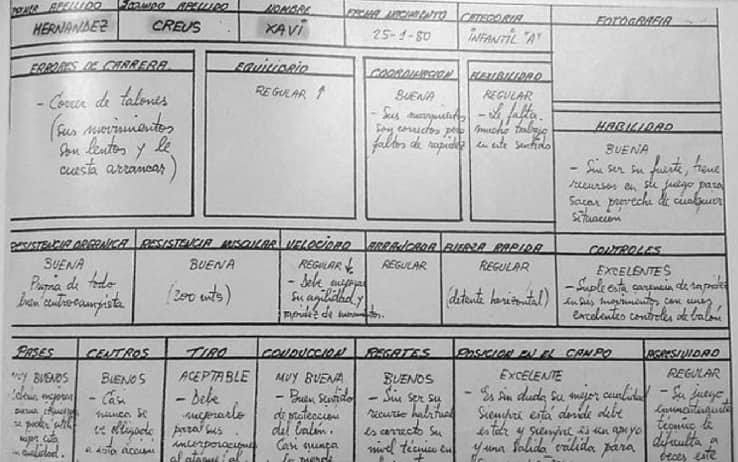 PRIMER APELLIDO SEGUNDO APELLIDO NOMBRE FECHA NACIMIENTO CATEGORIA FOTOGRAFIA
HERNANDEZ CREUS XAVI 25-1-80 INFANTIL "A"
ERRORES DE CARRERA
- Correr de talones
(sus movimientos
son lentos y le
cuesta arrancar)
EQUILIBRIO
REGULAR ↑
COORDINACION
BUENA
- Sus movimientos
son correctos pero
faltos de rapidez
FLEXIBILIDAD
REGULAR
- Le falta
mucho trabajo
en este sentido
HABILIDAD
BUENA
- Sin ser su fuerte, tiene
recursos en su juego para
sacar provecho de cualquier
situación
RESISTENCIA ORGANICA
BUENA
Propia de todo
buen centrocampista
RESISTENCIA MUSCULAR
BUENA
(200 mts)
VELOCIDAD
REGULAR ↓
- Debe mejorar
su agilidad y
rapidez de movimientos.
ARRANCADA
REGULAR
FUERZA RAPIDA
REGULAR
(detente horizontal)
CONTROLES
EXCELENTES
- Suple esta carencia de rapidez
en sus movimientos con unos
excelentes controles de balón
PASES
MUY BUENOS
mejorar
CENTROS
BUENOS
- Casi
nunca se
ve obligado
a esta acción
TIRO
ACEPTABLE
- Debe
mejorarlo
para sus
incorporaciones
al ataque
CONDUCCION
MUY BUENA
- Buen sentido
de protección
del balón.
Casi nunca
lo pierde
REGATES
BUENOS
- Sin ser su
recurso habitual
es correcto su
nivel técnico en
POSICION EN EL CAMPO
EXCELENTE
- Es sin duda su mejor cualidad
Siempre está donde debe
estar y siempre es un apoyo
y una salida válida para
AGRESIVIDAD
REGULAR
- Su juego
eminentemente
técnico le
dificulta a
veces este